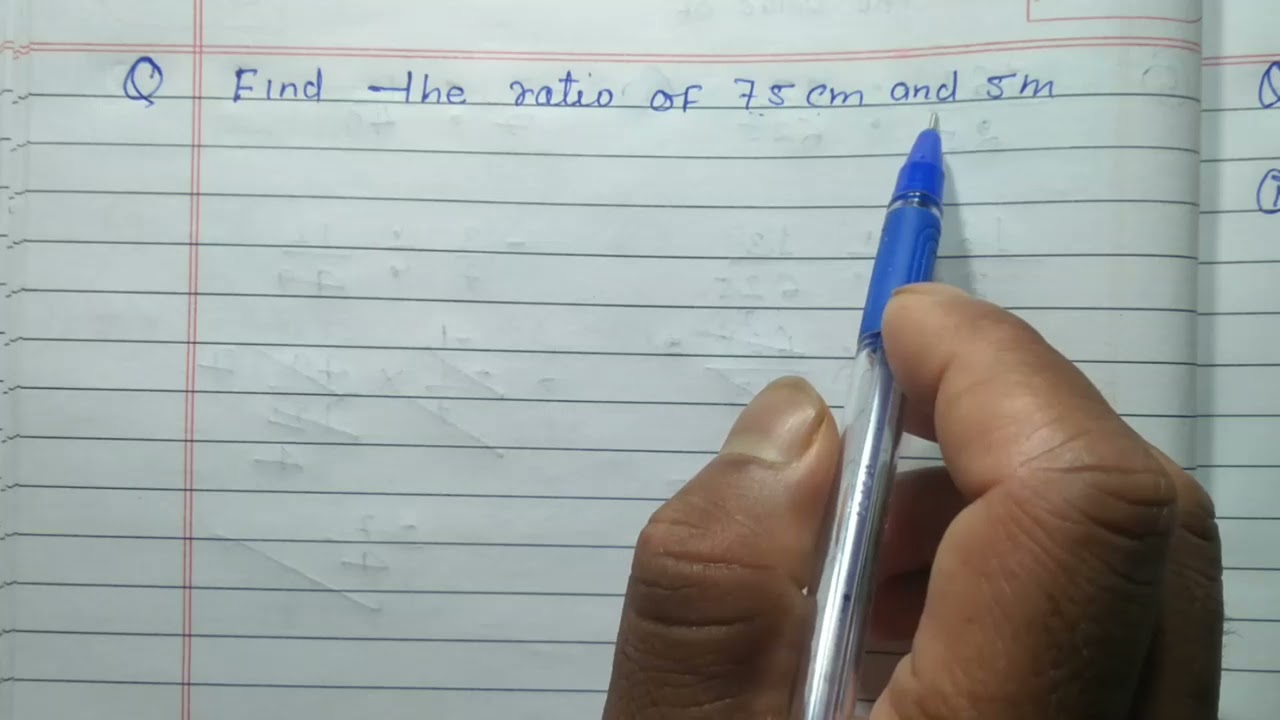 Q Find the ratio of 75 cm and 5m